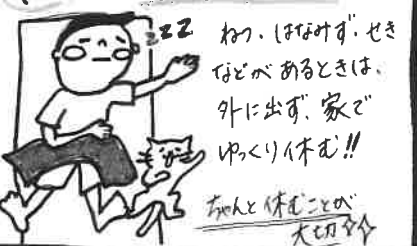 zzz
ねつ、はなみず、せき
などがあるときは、
外に出ず、家で
ゆっくり休む!!
ちゃんと休むことが
大切☆☆